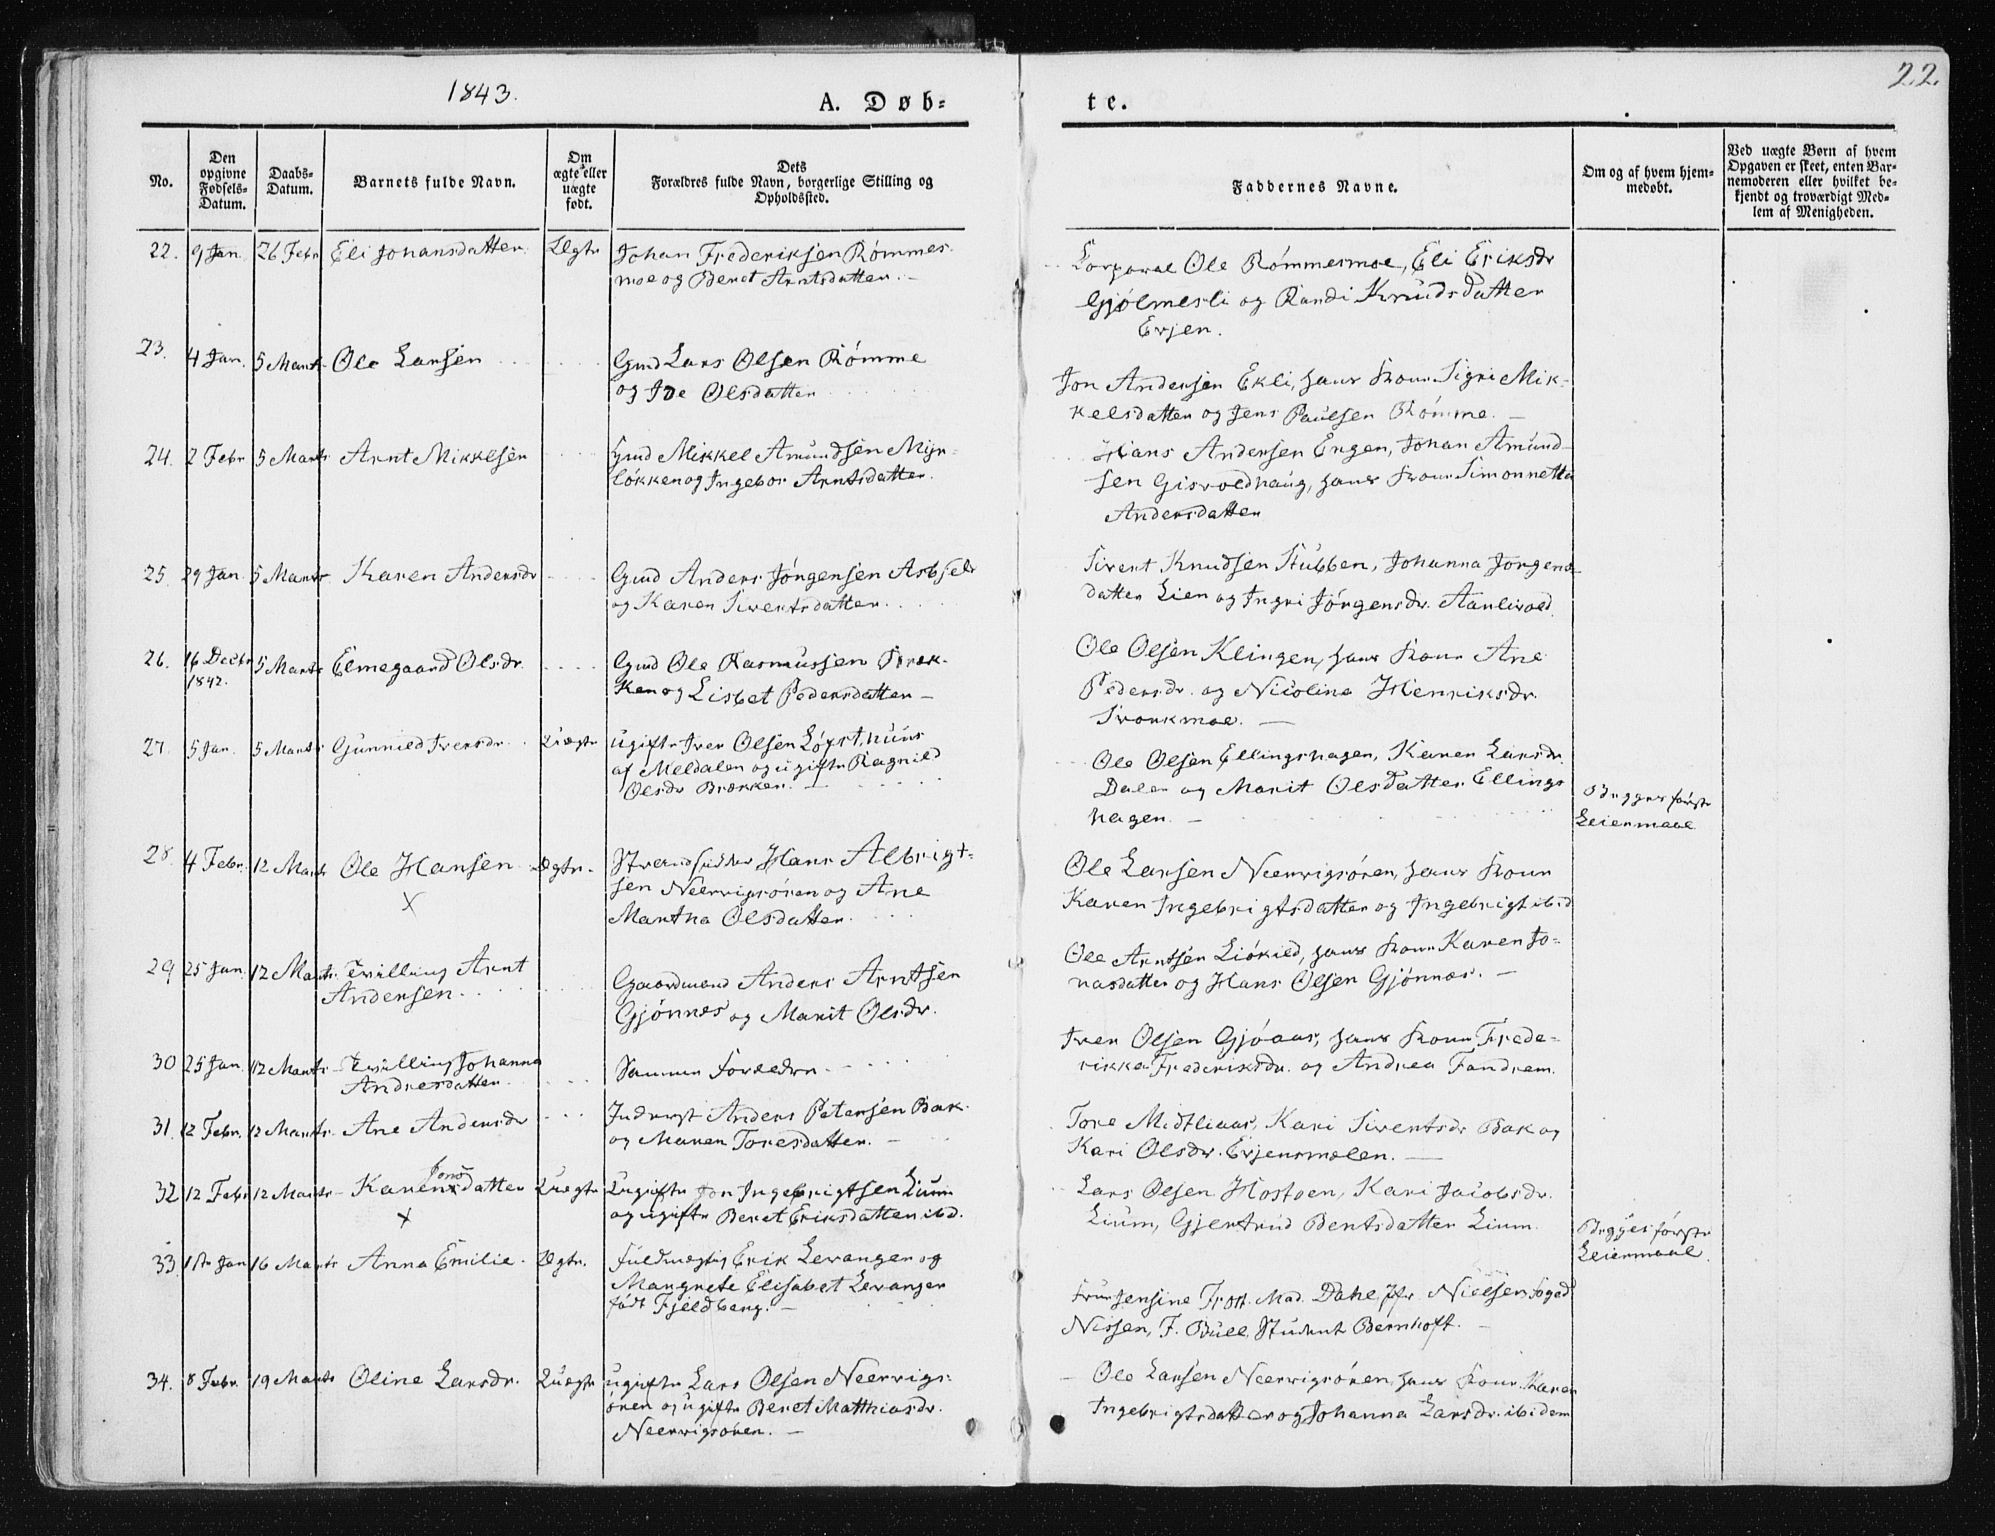 1843.
A. Døb-
te.
22.
No.
Den
opgivne
Fødsels-
Datum.
Daabs-
Datum.
Barnets fulde Navn.
Om
ægte eller
uægte
født.
Dets
Forældres fulde Navn, borgerlige Stilling og
Opholdssted.
Faddernes Navne.
Om og af hvem hjem-
medøbt.
Ved uægte Børn af hvem
Opgaven er skeet, enten Bar-
nemoderen eller hvilket be-
kjendt og troværdigt Med-
lem af Menigheden.
22. 9 Jan. 26 Febr Eli Johansdatter Ægte Johan Frederiksen Rømmes-
moe og Beret Arntsdatter. -
Corporal Ole Rømmesmoe, Eli Eriksdr
Gjølmesli og Randi Knudsdatter
Evjen.
23. 4 Jan. 5 Marts Ole Larsen Gmd Lars Olsen Rømme
og Olsdatter
Jon Andersen Ekli, hans Kone Sigri Mik-
kelsdatter og Jens Paulsen Rømme. -
24. 2 Febr 5 Marts Arnt Mikkelsen Gmd Mikkel Amundsen Myr-
løkken og Ingebor Arntsdatter.
Hans Andersen Engen, Johan Amund-
sen Gisvoldhaug, hans Kone Simonnetta
Andersdatter
25. 29 Jan. 5 Marts Karen Andersdr Gmd Anders Jørgensen Asbjel
og Karen Sivertsdatter.
Sivert Knudsen Stubben, Johanna Jørgens-
datter Lien og Ingri Jørgensdr. Aarlivold
26. 16 Decbr 5 Marts Elmegaard Olsdr. Gmd Ole Rasmussen Bræk-
1842.
ken og Lisbet Pedersdatter -
Ole Olsen Klingen, hans Kone Ane
Pedersdr. og Nicoline Henriksdr.
Svorkmoe. -
27. 5 Jan. 5 Marts Gunnild Iversdr. Uægte ugifte Iver Olsen Løgsthuus
af Meldalen og ugifte Ragnild
Olsdr Brækken. -
Ole Olsen Ellingshagen, Karen Larsdr.
Dalen og Marit Olsdatter Ellings
hagen. -
Begges første
Leiermaal
28. 4 Febr. 12 Marts Ole Hansen Ægte. Strandsidder Hans Albrigt-
X
sen Neervigsøren og Ane
Martha Olsdatter.
Ole Larsen Neervigsøren, hans Kone
Karen Ingebrigtsdatter og Ingebrigt ibid
29 25 Jan. 12 Marts. Tvilling Arnt
Andersen.
Gaardmand Anders Arntsen
Gjønnes og Marit Olsdr.
Ole Arntsen Liøkild, hans Kone Karen Jo-
nasdatter og Hans Olsen Gjønnes. -
30 25 Jan. 12 Marts Tvilling Johanna
Andersdatter.
Samme Forældre.
Iver Olsen Gjøaas, hans Kone Frede-
rikka Frederiksdr. og Andrea Fandrem.
31. 12 Febr. 12 Marts. Ane Andersdr Inderst Anders Petersen Bak
og Maren Toresdatter. -
Tore Midtliaas, Kari Sivertsdr Bak og
Kari Olsdr. Evjensmælen. -
32 12 Febr 12 Marts Karen Jonsdatter Uægte Ugifte Jon Ingebrigtsen Lium
X
og ugifte Beret Eriksdatter ibd.
Lars Olsen Hostoen, Kari Jacobsdr.
Lium, Gjertrud Bentsdatter Lium.
Begges første
Leiermaal.
33. 1ste Jan 16 Marts Anna Emilie. Ægte. Fuldmægtig Erik Levanger og
Mangrete Elisabet Levanger
født Fjeldberg. -
Fru Jensine Frost. Mad. Dahl, Jfr Nielsen, Foged
Nissen, F. Bull, Student Bernhoft. -
34. 8 Febr. 19 Marts Oline Larsdr. Uægte ugifte Lars Olsen Neervigs-
øren og ugifte Beret Matthiasdr.
Neervigsøren. -
Ole Larsen Neervigsøren, hans Kone Karen
Ingebrigtsdatter og Johanna Larsdr. ibidem